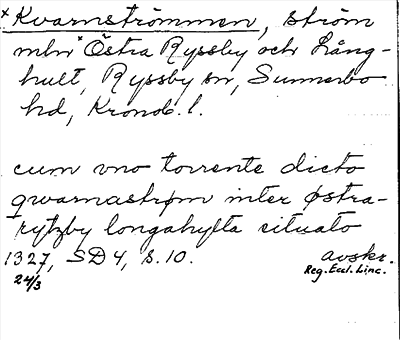 × Kvarnströmmen, ström
mln Östra Ryssby och Lång-
hult, Ryssby sn, Sunnerbo
hd, Kronob. l.
cum vno torrente dicto
qwarnastrøm inter østra-
rytzby longahylta situato
1327, SD 4, s. 10. avskr.
24/3 Reg. Eccl. Linc.